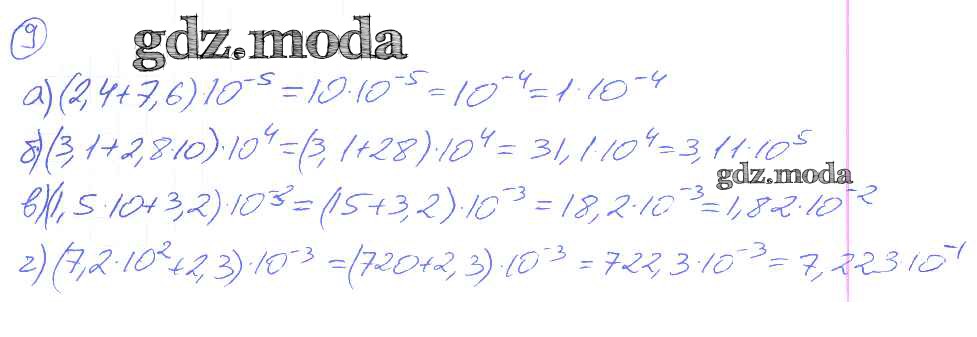 9
gdz.moda
а) (2,4+7,6)·10⁻⁵ = 10·10⁻⁵ = 10⁻⁴ = 1·10⁻⁴
б) (3,1+2,8·10)·10⁴ = (3,1+28)·10⁴ = 31,1·10⁴ = 3,11·10⁵
gdz.moda
в) (1,5·10+3,2)·10⁻³ = (15+3,2)·10⁻³ = 18,2·10⁻³ = 1,82·10⁻²
г) (7,2·10²+2,3)·10⁻³ = (720+2,3)·10⁻³ = 722,3·10⁻³ = 7,223·10⁻¹